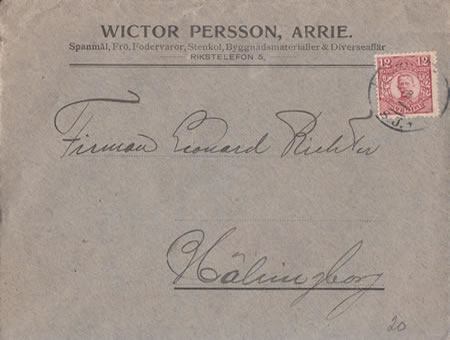 WICTOR PERSSON, ARRIE.
Spanmål, Frö, Fodervaror, Stenkol, Byggnadsmaterialier & Diverseaffär
RIKSTELEFON 5.
12 12
SVERIGE
Firman Leonard Richter
Hälsingborg
20